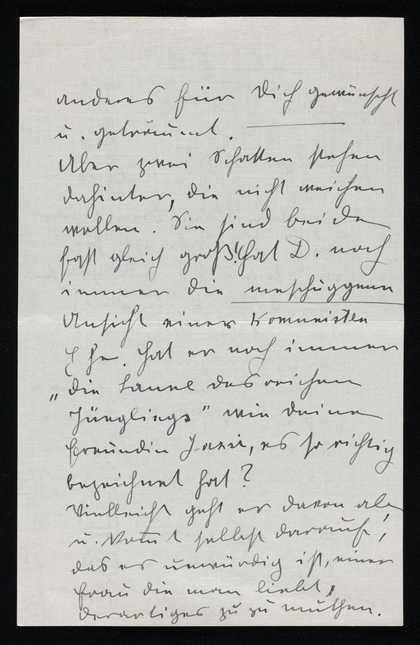 anderes für Dich gewünscht
u. geträumt.
Aber zwei Schatten stehen
dahinter, die nicht weichen
wollen. Sie sind beide
fast gleich groß! hat D. noch
immer die meschuggenen
Ansicht einer
Ehe. Hat er noch immer
„die Laune des reichen
Jünglings" wie deine
Freundin, es so richtig
bezeichnet hat?
Vielleicht geht er davon ab
u. kommt selbst darauf,
das es unwürdig ist, einer
Frau die man liebt,
derartiges zu zu muthen.